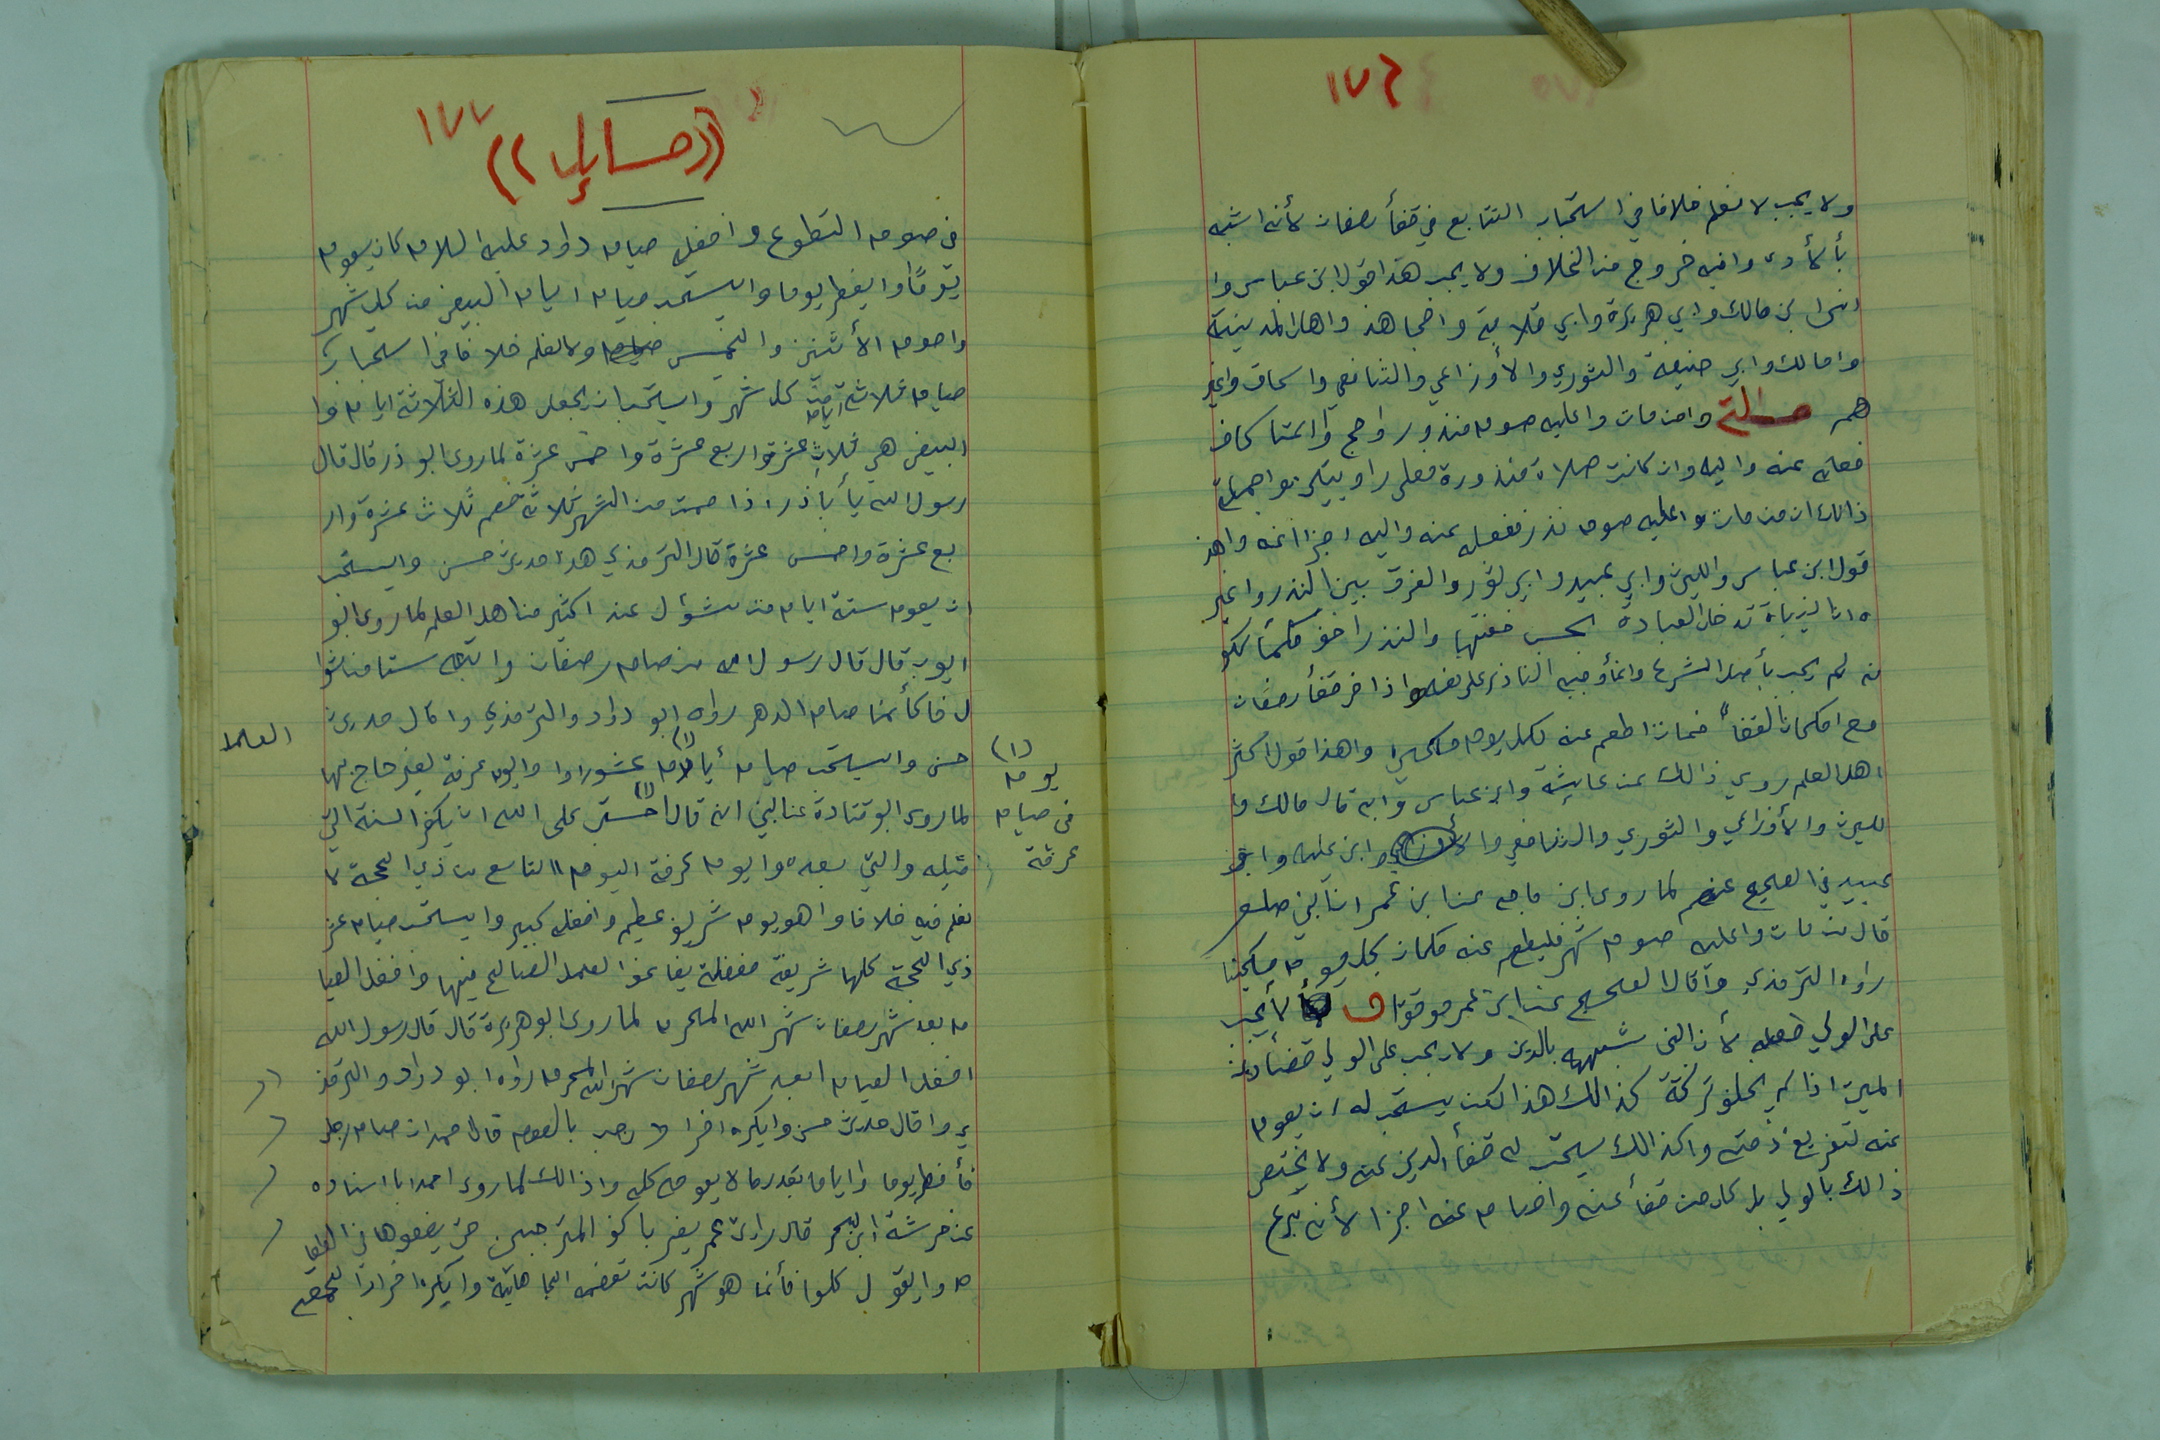 ١٧٦
ولا يجب لا نعلم خلافا في استحباب التتابع في قضأ رمضان لأنه اشبه
بألأدى وافيه خروج من الخلاف ولا يجب هذا قول ابن عباس وا
انس ابن مالك وابي هريرة وابي قلابة وامجاهد واهل المدينة
وامالك وابي حنيفة والثوري والأوزاعي والشافعي واسحاق واغير
هم مسالة وامن مات واعليه صوم منذور او حج او اعتكاف
فعله عنه واليه وان كانت صلاة منذورة فعلى راويتين واجملة
ذالك ان من مات واعليه صوم نذر ففعله عنه واليه اجزا عنه واهذ
قول ابن عباس والليث وابي عبيد وابي ثور والفرق بين النذر واغير
ه ان النيابة تدخل العبادة بحسب خفتها والنذر اخف حكما لكو
نه لم يجب بأصل الشرع وانمأ وجبه الناذر على نفسه واذا اخر قضأ رمضان
مع امكان القضأ فمات اطعم عنه لكل يوم مسكين واهذا قول اكثر
اهل العلم روي ذالك عن عايشة وابن عباس وابه قال مالك وا
لليث والأوزاعي والثوري والشافعي وا وابن عليه وابو
عبيد في الصحيح عنهم لما روى ابن ماجه عن ابن عمر ان النبي صلعم
قال من مات واعليه صوم شهر فليطعم عنه مكان كل يوم مسكينا
رواه الترمذي وقال الصحيح عن ابن عمر موقوفا لا يجب
على الولي فعله لأن النبي شبهه بالدين ولا يجب على الولي قضأ دين
الميت اذا لم يخلف تركة كذالك هذا لكن يستحب له ان يصوم
عنه لتفريغ ذمته واكذالك يستحب له قضأ الدين عنه ولا يختص
ذالك بالولي بل كل من قضأ عنه واصام عنه اجزا لأنه تبرع
١٧٧
((مسايل))
في صوم التطوع وافضله صيام داود عليه السلام كان يصوم
يومًا وايفطر يوما وايستحب صيام ايام البيض من كل شهر
واصوم الأثنين والخميس ولا نعلم خلافا في استحباب
صيام ثلاثة ايام من كل شهر واستحب ان يجعل هذه الثلاثة ايام وا
البيض هي ثلاث عشرة واربع عشرة واخمس عشرة لما روى ابو ذر قال قال
رسول الله يأ بأ ذر اذا صمت من الشهر ثلاثة فصم ثلاث عشرة وار
بع عشرة واخمس عشرة قال الترمذي هذا حديث حسن وايستحب
ان يصوم ستة ايام من شؤل عند اكثير من اهل العلم لما روى ابو
ايوب قال قال رسول الله من صام رمضان واتبعه ستا من شوا
ل فاكأنما صام الدهر رواه ابو داود والترمذي واقال حديث
حسن وايستحب صيام أيام (١) عشورا وايوم عرفة لغير حاج بها
لما روى ابو قتادة عن النبي انه قال (١) احتسب على الله ان يكفر السنة التي
قبله والتي بعده وايوم عرفة اليوم التاسع من ذي الحجة لا
نعلم فيه خلافا واهو يوم شريف عظيم وافضله كبير وايستحب صيام عشر
ذي الحجة كلها شريفة مفضلة يضاعف العمل الصالح فيها وافضل الصيا
م بعد شهر رمضان شهر الله المحرم لما روى ابو هريرة قال قال رسول الله
افضل الصيام بعد شهر رمضان شهر الله المحرم رواه ابو داود والترمذ
ي واقال حديث حسن وايكره افراد رجب بالصوم قال احمد ان صام رجل
فأفطر يوما وايام بقدر ما لا يصومه كله واذالك لما روى احمد بااسناده
عن خرشة ابن الحر قال رايت عمر يضرب اكف المترجبين حتى يضعوها في الطعا
م وايقول كلوا فأنما هو شهر كانت تعظمه الجاهلية وايكره افراد الجمعة
(١)
يوم
في صيام
عرفة
العلما